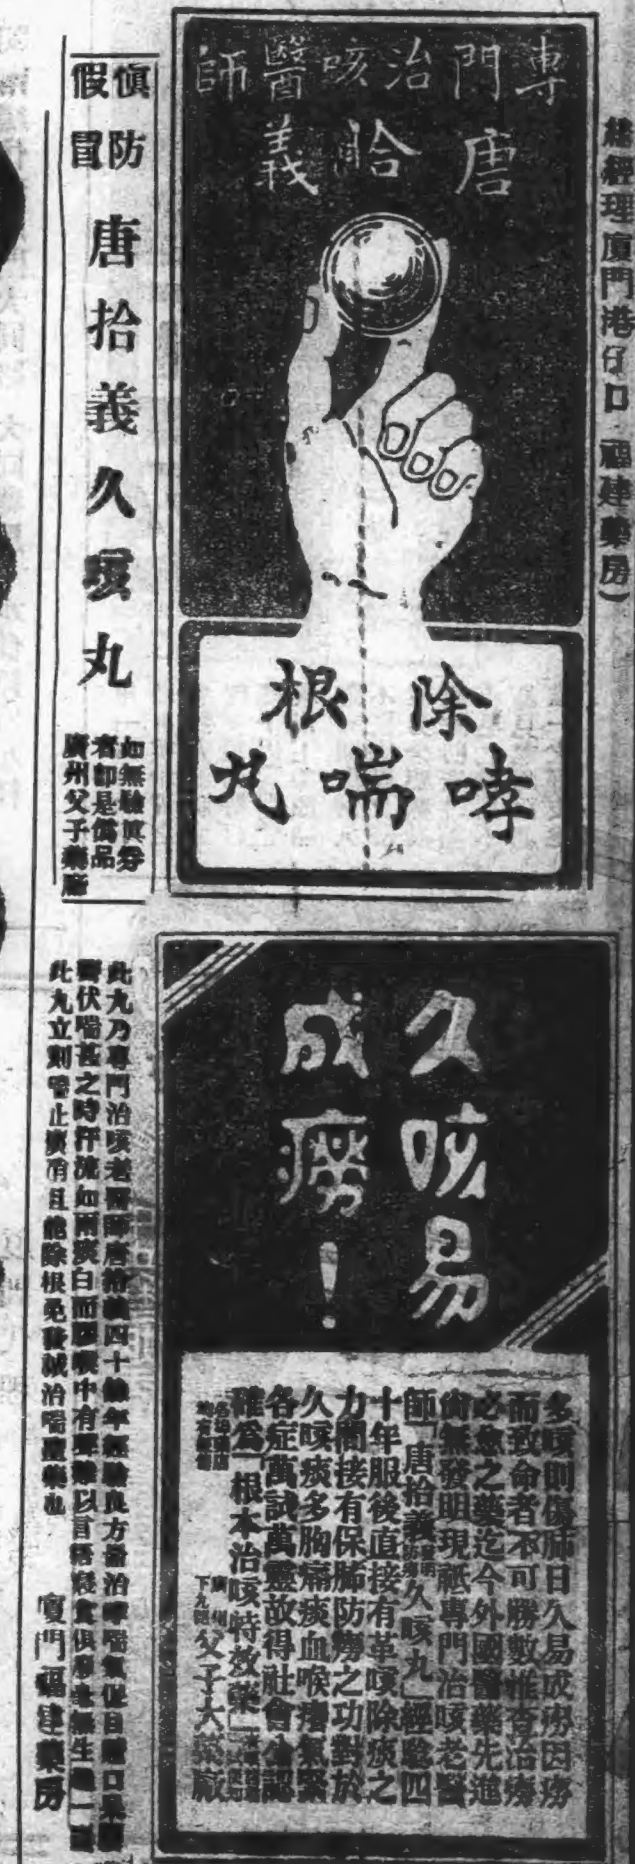 總經理廈門港仔口 福建藥房）
專門治咳醫師
唐拾義
除根
哮喘丸
慎防
假冒
唐拾義久咳丸
如無驗眞劵
者即是僞品
廣州父子藥廠
久咳易
成癆！
多咳則傷肺日久易成癆因癆
而致命者不可勝數惟查治癆
必愈之藥迄今外國醫藥先進
尙無發明現祗專門治咳老醫
師「唐拾義久咳丸」經驗四
十年服後直接有革咳除痰之
力間接有保肺防癆之功對於
久咳痰多胸痛痰血喉癢氣緊
各症萬試萬靈故得社會公認
確爲「根本治咳特效藥」
廣州
下九甫
父子大藥廠
此丸乃專門治咳老醫師唐拾義四十餘年經驗良方善治哮喘氣促目瞪口呆
伏喘甚之時汗流如雨痰白而膠喉中有聲難以言語寢食俱廢毫無生趣一服
此丸立刻喘止痰消且能除根免發誠治喘聖藥也
廈門福建藥房